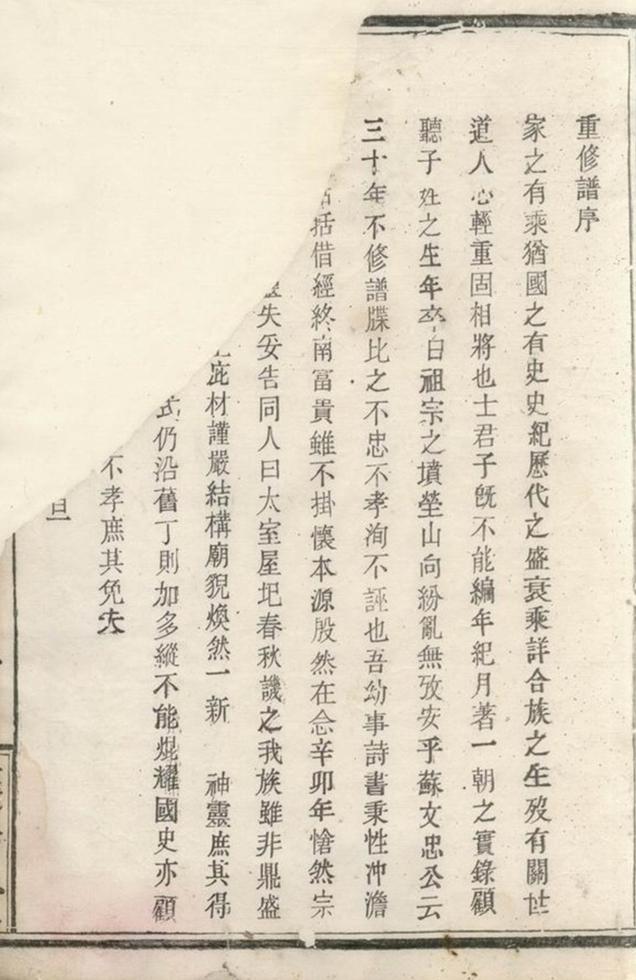 重修譜序
家之有乘猶國之有史史紀歷代之盛衰乘詳合族之生歿有關世
道人心輕重固相將也士君子旣不能編年紀月著一朝之實錄顧
聽子姓之生年卒白祖宗之墳塋山向紛亂無攷安乎蘇文忠公云
三十年不修譜牒比之不忠不孝洵不誣也吾幼事詩書秉性冲澹
括借經終南富貴雖不掛懷本源殷然在念辛卯年愴然宗
失妥告同人曰太室屋圯春秋譏之我族雖非鼎盛
庀材謹嚴結構廟貌煥然一新 神靈庶其得
式仍沿舊丁則加多縱不能焜耀國史亦顧
不孝庶其免夫
旦